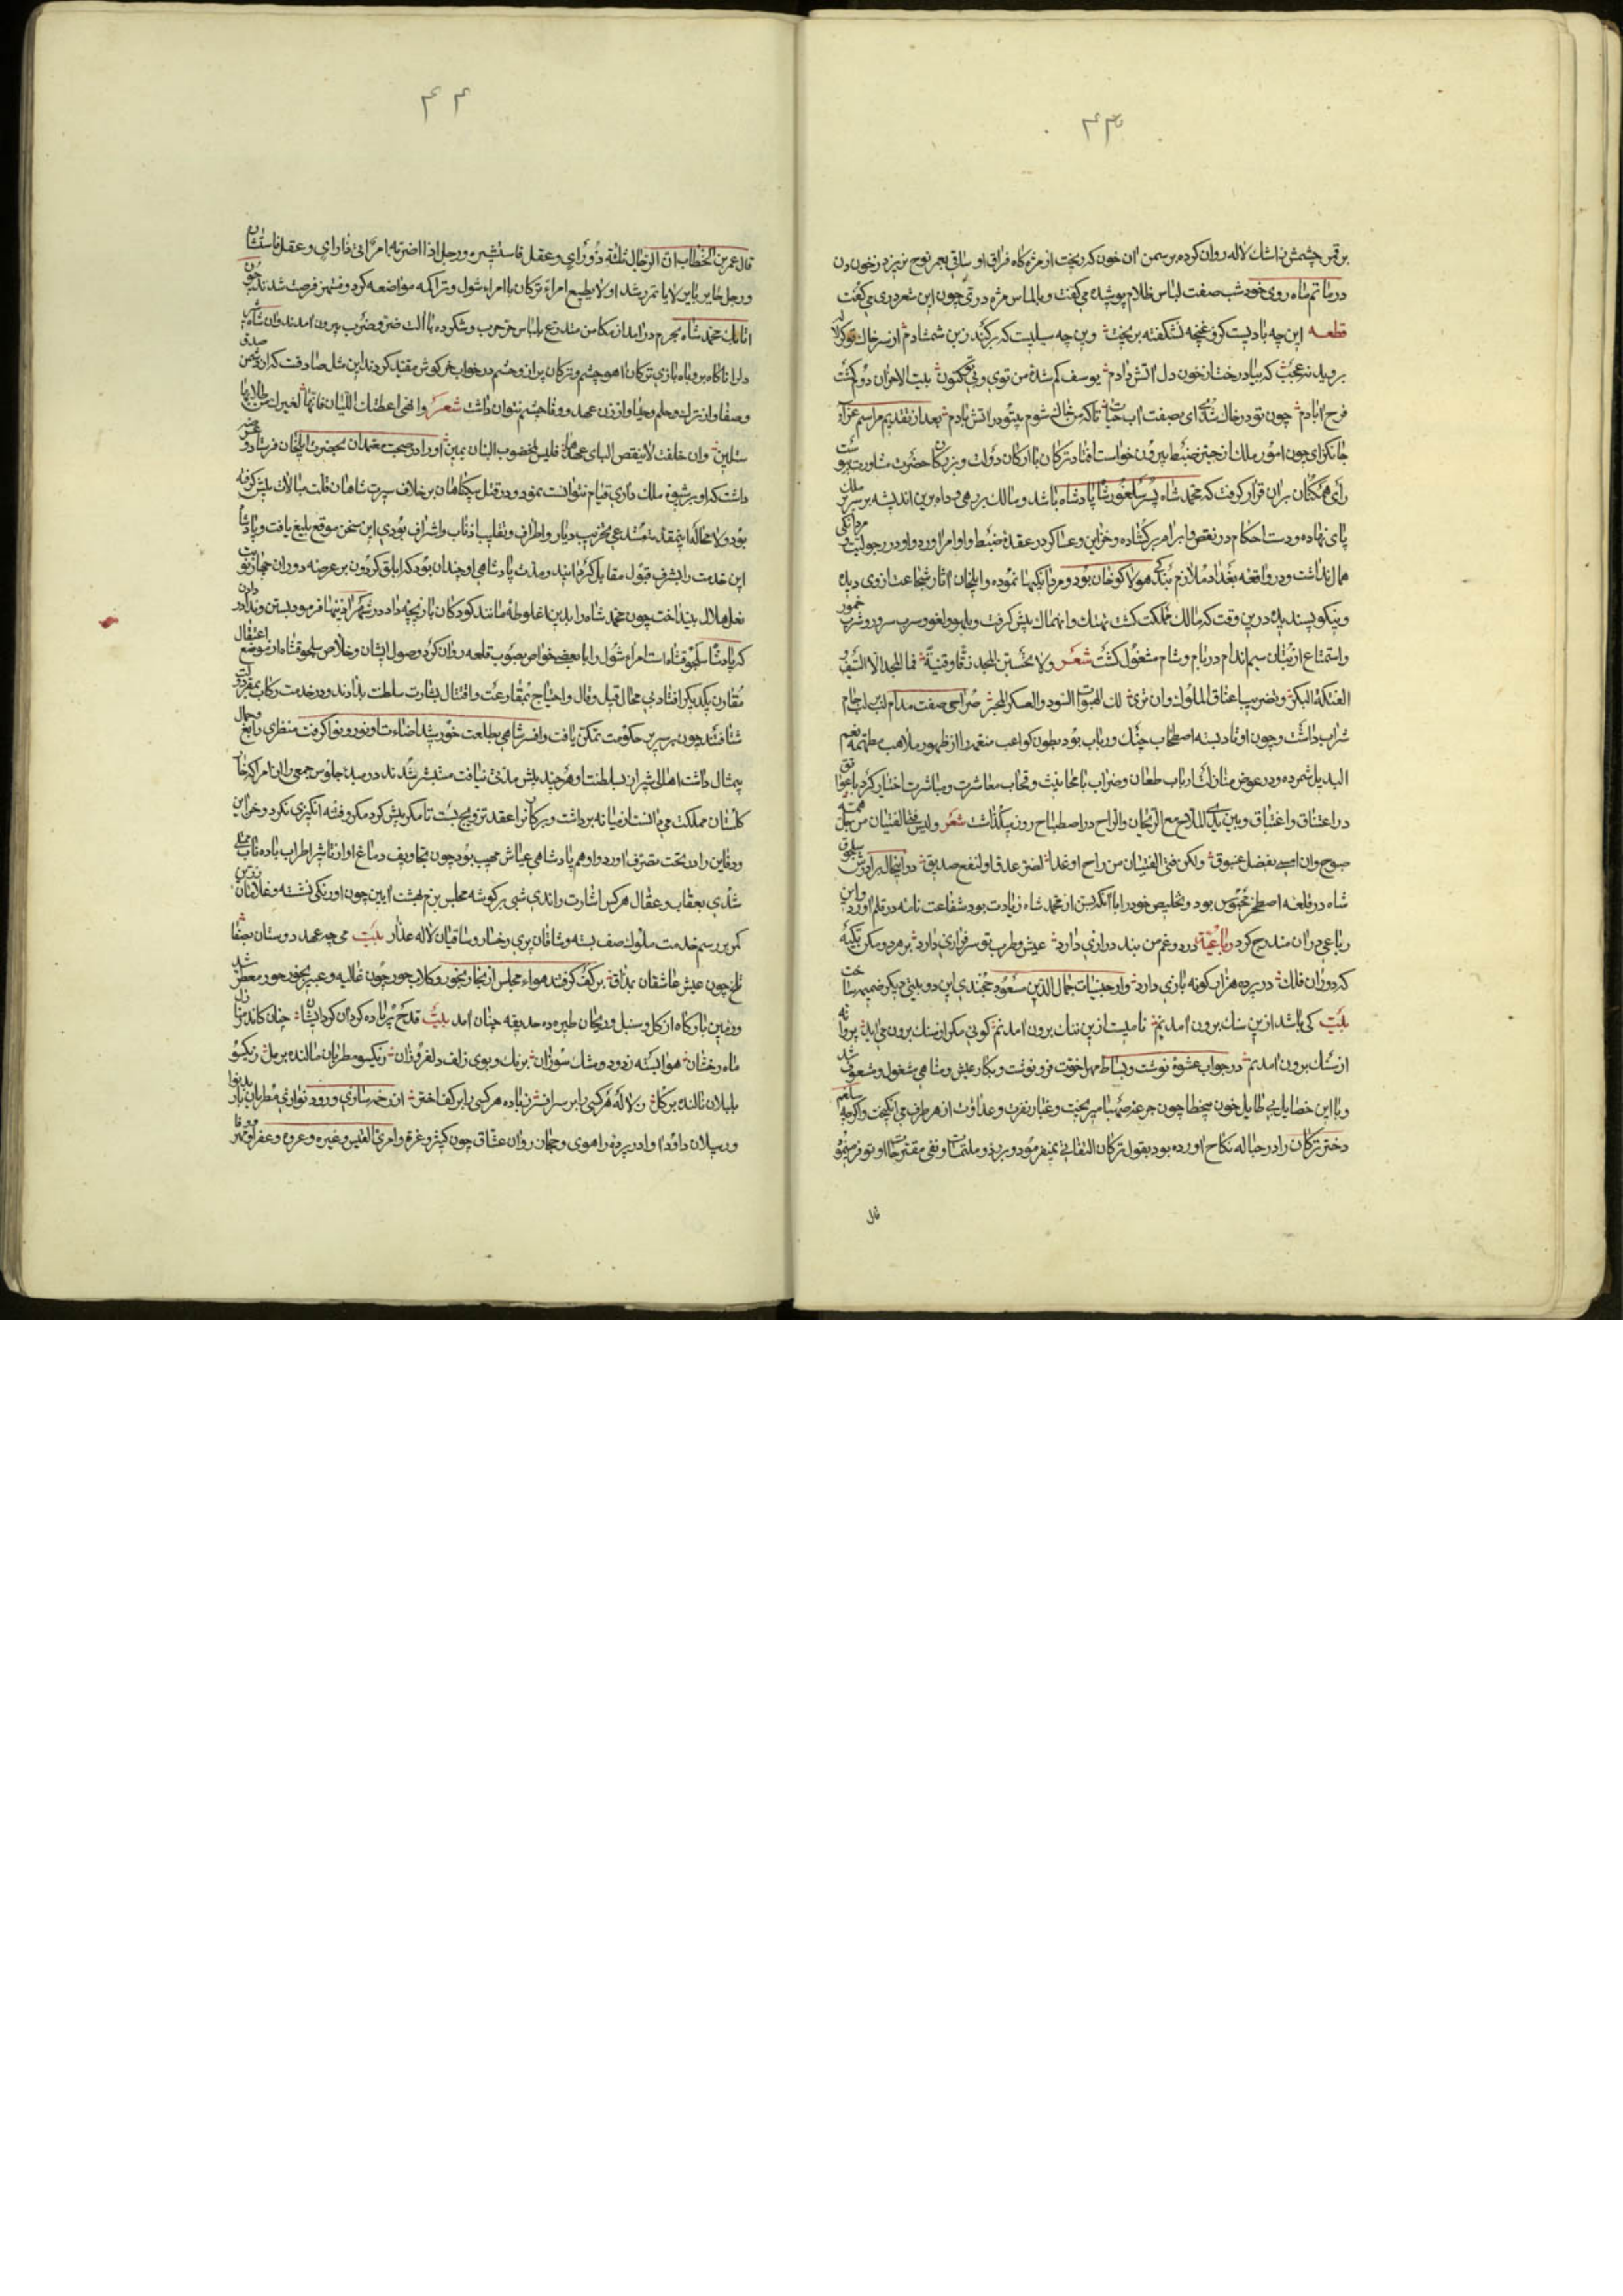 ۴۳
بر قمر چشمش ز اشك لاله روان کرده بر سمن ان خون که ریخت از مژه کاه فراق او
در ماتم ماه روی خود شب صفت لباس ظلام پوشیده می کفت و بالماس مژه در چون این شعر دری می کفت
قطعه این چه بادیست کزو غنچه نشکفته بریخت وین چه سیلیست که برکند ز بن شمشادم از سر خاك تو کر لاله
بروید نه عجب که بباد رخت از خون دل اتش دادم یوسف کم شدهٔ من توی و بی تو کنون بیت الاحزان دوم کشت
فرح ابادم چون تو در خاك شدی ای بصفت اب حیات تا که من خاك شوم بیتو در اتش بادم بعد از تقدیم مراسم عزا
جانکزای چون امور ملك از حیز ضبط بیرون خواست افتاد ترکان با ارکان دولت و بزرکان حضرت مشاورت پیوست
رای همکنان بران قرار کرفت که محمد شاه پسر سلغور شاه پادشاه باشد و سالك برهی و ماه برین اندیشه بر سریر ملك
پای نهاده و دست احکام در نقض و ابرام برکشاده و خزاین و عساکر در عقدهٔ ضبط و اوامر اورد و او در رجولیت و مردانکی
همال نداشت و در واقعه بغداد ملازم بندکی هولاکو خان بود و مردانکیها نموده و ایلخان اثار شجاعت از وی دیده
و نیکو پسندیده درین وقت که مالك مملکت کشت تهتك و انهماك پیش کرفت و بلهو و لغو و سرب سرور و شرب خمور
و استمتاع از بتان سیم اندام در بام و شام مشغول کشت شعر ولا تحسبن المجد زقا وقینة فما المجد الا السیف و
الفتکة البکر وتضریب اعناق الملوك وان تری لك الهبوات السود والعسکر المجر صراحی صفت مدام لب بر لب جام
شراب داشت و چون اوتاد بسته اصطحاب چنك و رباب بود بطون کواعب منعم را از ظهور سلاهب مطهم نعم
البدیل شمرده و در عوض منازلت ارباب طعان و ضراب
در اعتناق و اغتباق و بین بکی الملاح مع الریحان والراح در اصطباح روز میکذاشت شعر ولیس فتی الفتیان من جل همه
صبوح وان امسی بفضل غبوق ولکن فتی الفتیان من راح او غدا لضر عدو او لنفع صدیق در اینحال برادرش سلجوق
شاه در قلعه اصطخر محبوس بود و تخلیص خود را با انکه بسن از محمد شاه زیادت بود شفاعت نامه در قلم اورد و این
رباعی دران مندرج کرد رباعیة درد و غم من بند درازی دارد عیش و طرب تو سرفرازی دارد بر هر دو مکن تکیه
که دوران فلك در پرده هزار کونه بازی دارد و از حبسیات جمال الدین مسعود خجندی این دو بیتی دیکر ضمیمه ساخت
بیت کی باشد ازین سنك برون امدنم نامیست ازین ننك برون امدنم کویی مکر از سنك برون می اید پروانه
از سنك برون امدنم در جواب عشوهٔ نوشت و بساط مهر اخوت فرو نوشت و بکار عیش و مناهی مشغول و مشعوف شد
و با این خطایا بی طایل خون بیخطا چون جرعه صهبا میریخت و غبار نفرت و عداوت از هر طرف می انکیخت و اکرچه سلغم
دختر ترکان را در حباله نکاح اورده بود بقول ترکان التفاتی نمیفرمود و بر رد ملتمسات و نفی مقترحات او توفر مینمود
قال
۴۴
قال عمر بن الخطاب ان الرجال ثلثة ذو رای وعقل فاستشیره ورجل اذا اضربه امر اتی ذا رای وعقل فاستشاره
ورجل حایر بایر لا یاتمر رشدا ولا یطیع امرا ترکان با امراء شول و تراکمه مواضعه کرد و منتهز فرصت شدند چون
اتابك محمد شاه بحرم درامد از مکامن متدرع بلباس حرب و شکرده با الت ضرب بیرون امدند وان شاه
دلیر ناکاه بروباه بازی ترکان اهو چشم و ترکان پرانده چشم در خواب خرکوش مقید کردند این مثل صادقست که از زن
وصفا و از ترك وحلم وحیا و از زن عهد ووفا چشم نتوان داشت شعر
سنلین وان حلفت لا ینقض النای عهدها فلیس لمخضوب البنان یمین او را در صحبت معتمدان بحضرت ایلخان فرستاد و عرضه
داشت که او بر شیوهٔ ملك داری قیام نتوانست نمود و در قتل بیکناهان بر خلاف سیرت شاهان قلت مبالات پیش کرفته
بود ولا محاله اینمقدمه مستدعی تخریب دیار و اطراف و تقلیب اذناب و اشراف بودی این سخن موقع بلیغ یافت و پادشاه
این خدمت را بشرف قبول مقابل کردانید و مدت پادشاهی او چندان بود که ابلق کردون بر عرصه دوران
نعل هلال بینداخت چون محمد شاه را بدین اغلوطه مانند کودکان بازیچه داد در شهر ایینها فرمود بستن و ندا در دادن
که پادشا سلجوقشاه است امراء شول را با بعضی خواص بصوب قلعه روان کرد وصول ایشان و خلاص سلجوقشاه از موضع اعتقال
مقارن یکدیکر افتاد بی مجال قیل و قال و احتیاج بمقارعت و اقتتال بشارت سلطنت بدادند و در خدمت رکاب
شتافتند چون بر سریر حکومت تمکن یافت و افسر شاهی بطلعت خورشید اضاءت او نور و نوا کرفت منظری رایع و جمال
بیمثال داشت اهالی شیراز بسلطنت او هر چند بیش مدتی نیافت مستبشر شدند در مبدأ جلوس جمعی را از امرا که خار
کلستان مملکت می دانست از میانه برداشت و ترکان را عقد تزویج بست تا مکر بیش کرد مکر و فتنه انکیزی نکرد و خزاین
و دفاین را در تحت تصرف اورد و او هم پادشاهی عیاش مهیب بود چون تجاویف دماغ او از تاثیر اطراب باده ناب ممتلی
شدی بعقاب و عقال هر کس اشارت راندی شبی بر کوشه مجلس بزم بهشت ایین چون اورنکی نشسته و غلامان زرین
کمر بر رسم خدمت ملوك صف بسته و شاقان پری رخسار و ساقیان لاله عذار بیت می چو عهد دوستان بیصفا
تلخ چون عیش عاشقان بمذاق بر کف کرفته هواء مجلس از بخار بخور و کلاب جور چون غالیه و عبیر بخور حور معطر شد
و زمین بارکاه از کل و سنبل و ریحان طیره ده حدیقه چنان امد بیت قدح پر باده کردان کرد ایشان چنان کاندر منازل
ماه رخشان هوا بسته ز دود و مشك سوزان برنك و بوی زلف دلفروزان ز یکسو مطربان نالنده بر مل ز یکسو
بلبلان نالنده بر کل ز لاله هر کسی را بر سر افسر ز باده هر کسی را بر کف اخکر از زخمه سازی و رود نوازی مطربان باربد نوا
و رسیلان داود اوا در پرده راهوی و حجاز روان عشاق چون کثیر و غره و امرئ القیس و عنیزه و عروه و عفرا